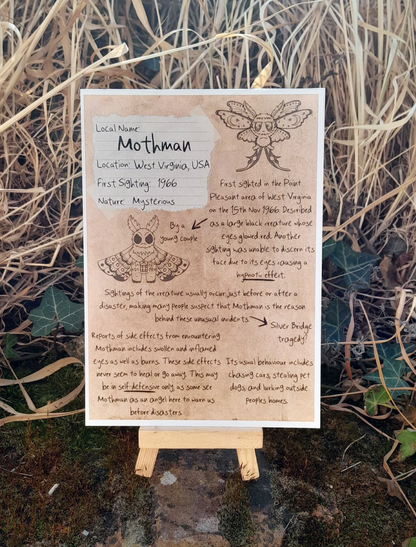 Local Name:
Mothman
Location: West Virginia, USA
First Sighting: 1966
Nature: Mysterious
First sighted in the Point
Pleasant area of West Virginia
on the 15th Nov 1966. Described
as a large black creature whose
eyes glowed red. Another
sighting was unable to discern its
face due to its eyes causing a
hypnotic effect.
By a
young couple
Sightings of the creature usually occur just before or after a
disaster, making many people suspect that Mothman is the reason
behind these unusual incidents
Silver Bridge
tragedy!
Reports of side effects from encountering
Mothman includes swollen and inflamed
eyes as well as burns. These side effects
never seem to heal or go away. This may
be in self-defensive only as some see
Mothman as an angel here to warn us
before disasters.
Its usual behaviour includes
chasing cars, stealing pet
dogs, and lurking outside
peoples homes.